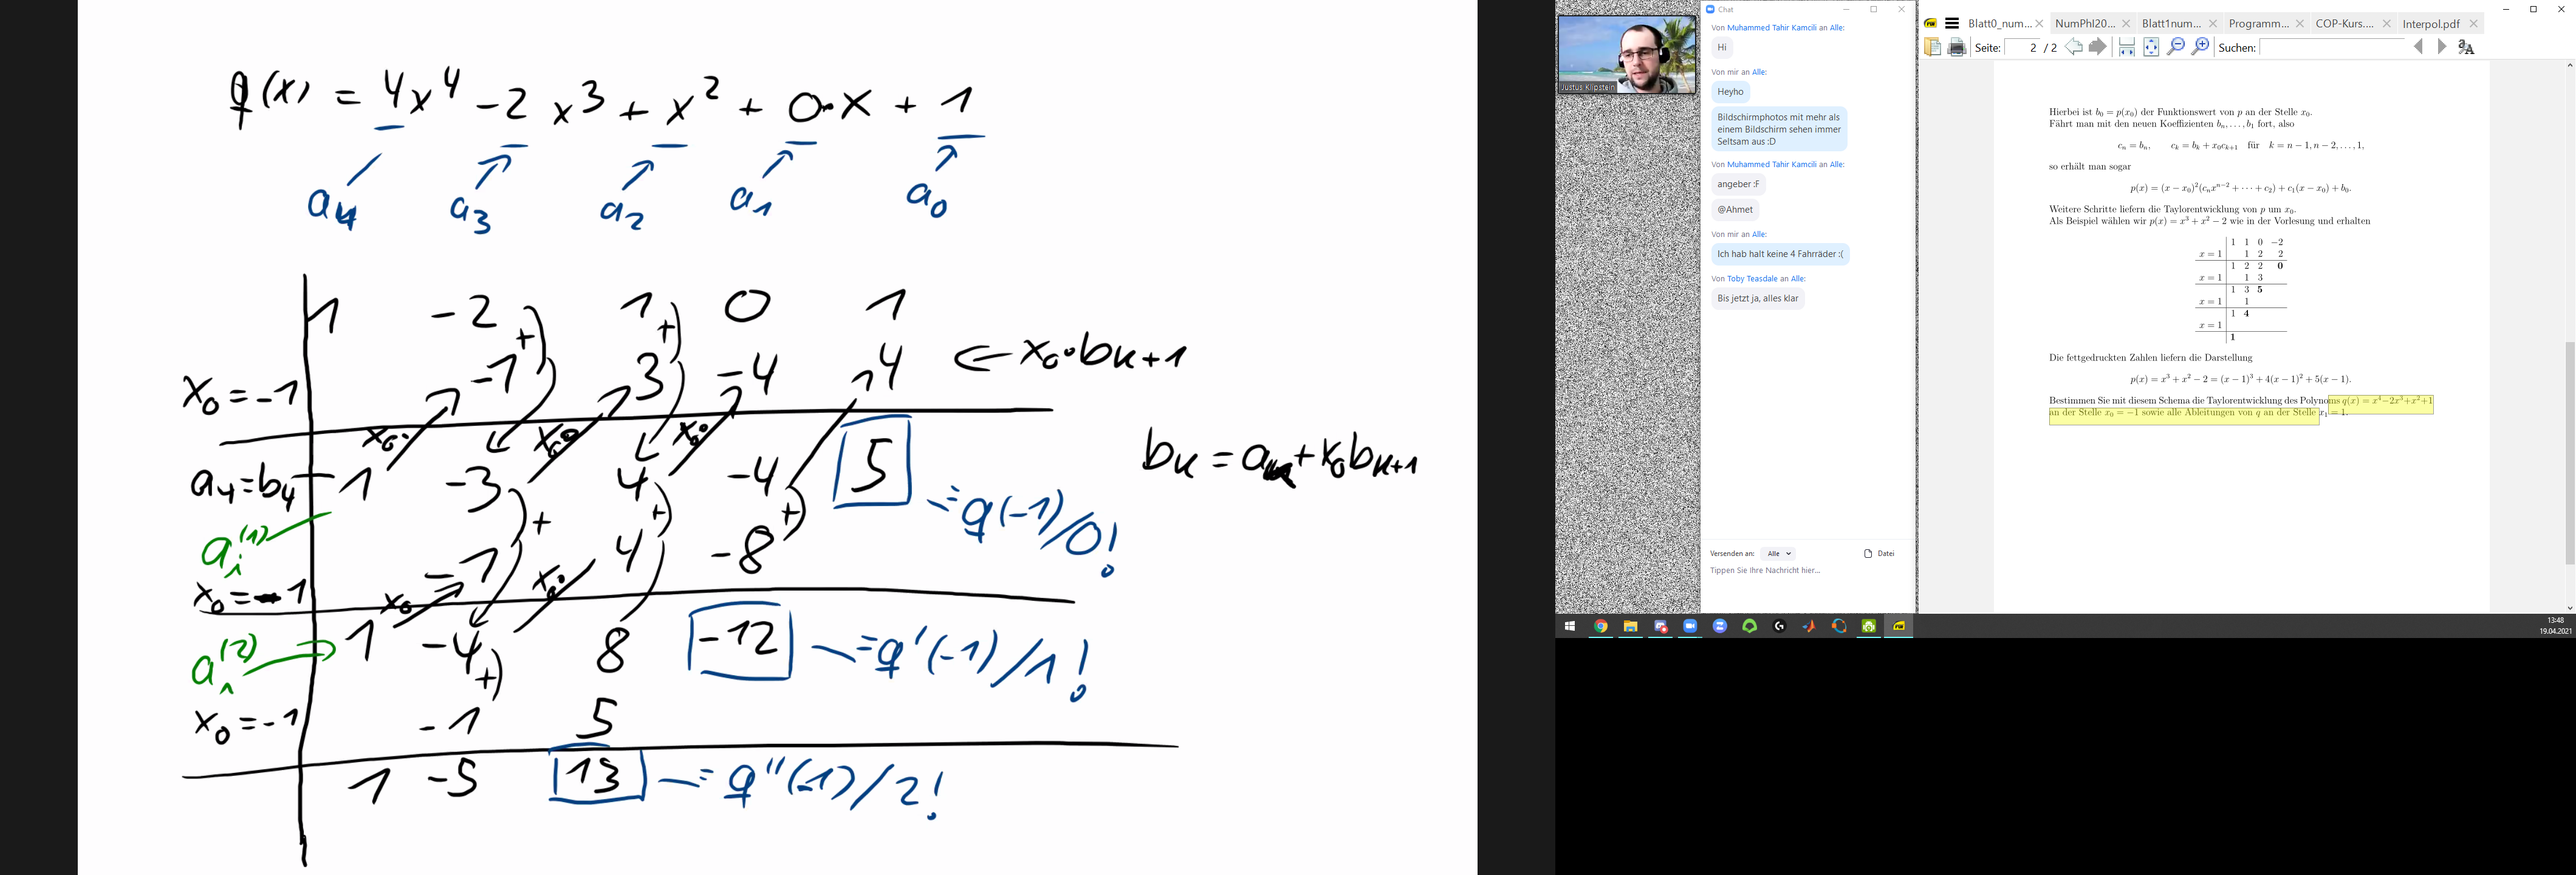 q(x) = 4x⁴ - 2x³ + x² + 0·x + 1
a₄ a₃ a₂ a₁ a₀
1 -2 1 0 1
+) +)
x₀ = -1 -1 3 -4 4 ← x₀·bₖ₊₁
x₀· x₀· x₀·
a₄=b₄ 1 -3 4 -4 5 = q(-1)/0!
bₖ = aₖ + x₀bₖ₊₁
)+ +) +)
aᵢ⁽¹⁾
x₀ = -1 -1 4 -8
x₀ x₀·
aᵢ⁽²⁾ → 1 -4 8 -12 = q'(-1)/1!
+)
x₀ = -1 -1 5
1 -5 13 = q''(-1)/2!
Justus Klipstein
Chat
Von Muhammed Tahir Kamcili an Alle:
Hi
Von mir an Alle:
Heyho
Bildschirmphotos mit mehr als
einem Bildschirm sehen immer
Seltsam aus :D
Von Muhammed Tahir Kamcili an Alle:
angeber :F
@Ahmet
Von mir an Alle:
Ich hab halt keine 4 Fahrräder :(
Von Toby Teasdale an Alle:
Bis jetzt ja, alles klar
Versenden an: Alle Datei
Tippen Sie Ihre Nachricht hier...
Blatt0_num... NumPhI20... Blatt1num... Programm... COP-Kurs.... Interpol.pdf
Seite: 2 / 2 Suchen:
Hierbei ist b₀ = p(x₀) der Funktionswert von p an der Stelle x₀.
Fährt man mit den neuen Koeffizienten bₙ, . . . , b₁ fort, also
cₙ = bₙ, cₖ = bₖ + x₀cₖ₊₁ für k = n − 1, n − 2, . . . , 1,
so erhält man sogar
p(x) = (x − x₀)²(cₙxⁿ⁻² + · · · + c₂) + c₁(x − x₀) + b₀.
Weitere Schritte liefern die Taylorentwicklung von p um x₀.
Als Beispiel wählen wir p(x) = x³ + x² − 2 wie in der Vorlesung und erhalten
1 1 0 −2
x = 1 1 2 2
1 2 2 0
x = 1 1 3
1 3 5
x = 1 1
1 4
x = 1
1
Die fettgedruckten Zahlen liefern die Darstellung
p(x) = x³ + x² − 2 = (x − 1)³ + 4(x − 1)² + 5(x − 1).
Bestimmen Sie mit diesem Schema die Taylorentwicklung des Polynoms q(x) = x⁴−2x³+x²+1
an der Stelle x₀ = −1 sowie alle Ableitungen von q an der Stelle x₁ = 1.
13:48
19.04.2021